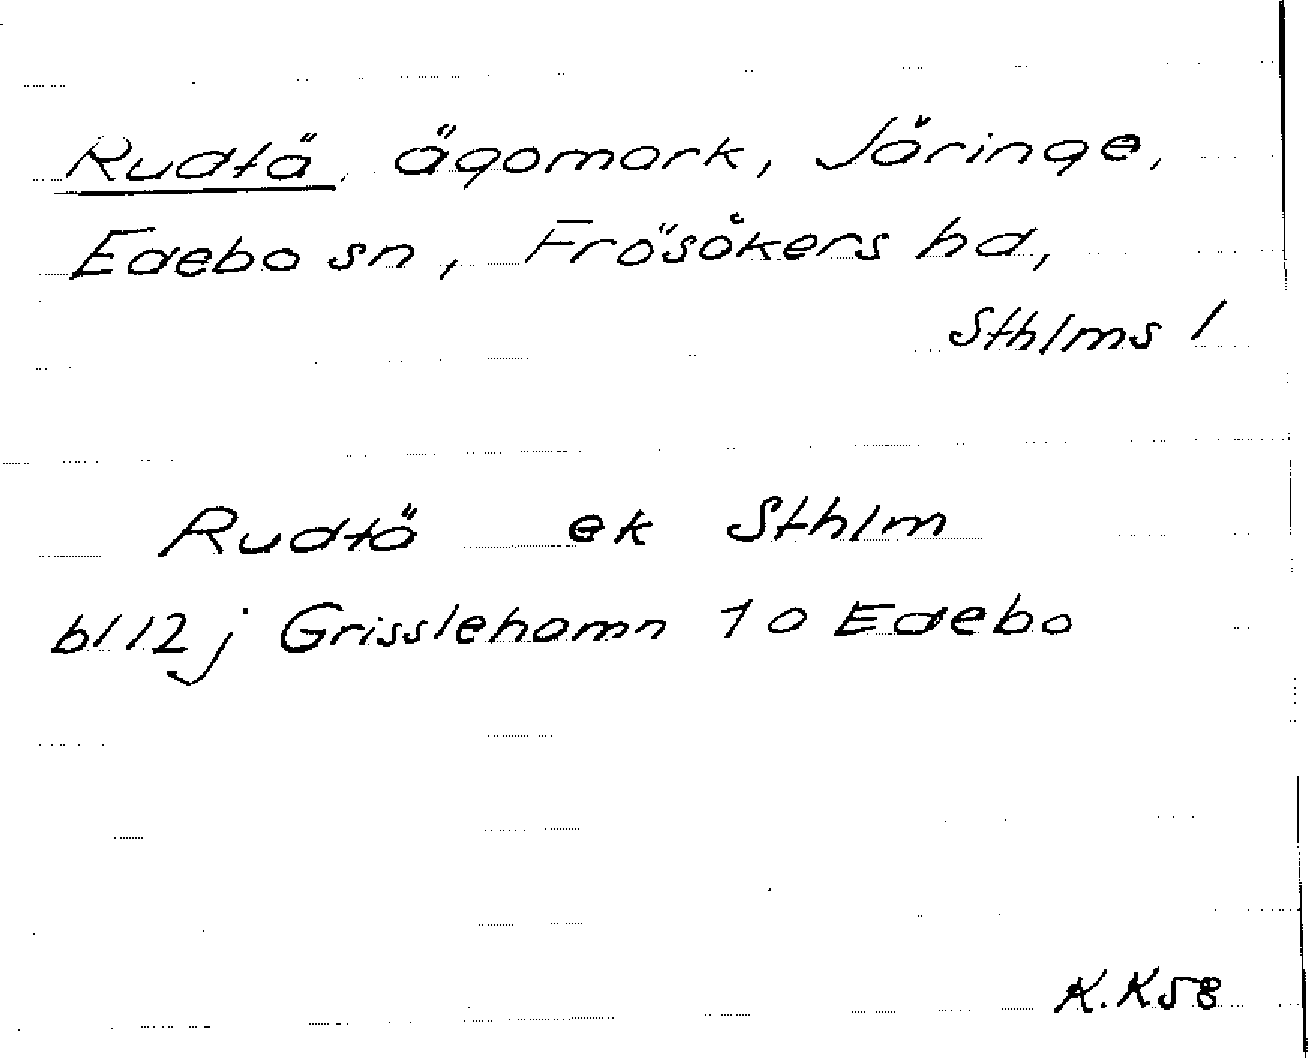 Rudtä, ägomark, Jåringe,
Edebo sn, Frösåkers hd,
Sthlms l
Rudtä ek Sthlm
bl 12 j Grisslehamn 10 Edebo
K.K 58